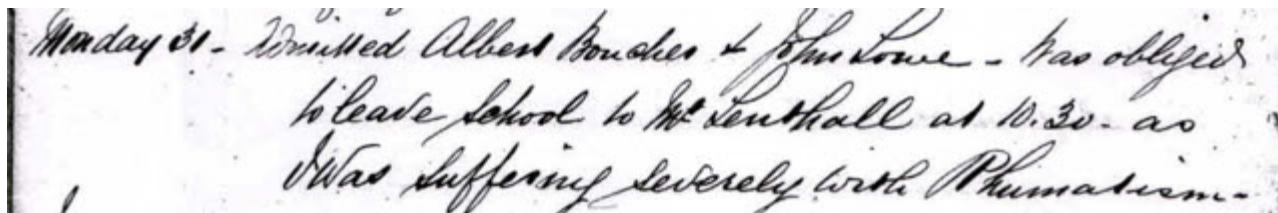 Monday 30 - Admitted Albert Boucher & John Lowe - Was obliged
to leave School to Mr Lenthall at 10.30 - as
I was suffering severely with Rhumatism -